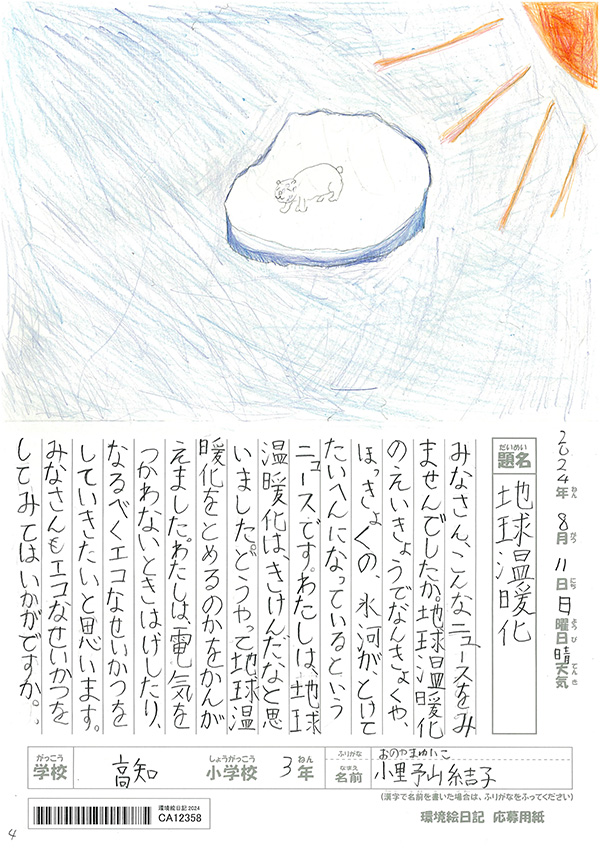 2024年 8月 11日 日曜日 晴天気
ねん がつ にち ようび てんき
だいめい
題名
地球温暖化
みなさん、こんなニュースをみ
ませんでしたか。地球温暖化
のえいきょうでなんきょくや、
ほっきょくの、氷河が、とけて
たいへんになっているという
ニュースです。わたしは、地球
温暖化は、きけんだなと思
いました。どうやって地球温
暖化をとめるのかをかんが
えました。わたしは、電気を
つかわないときはけしたり、
なるべくエコなせいかつを
していきたいと思います。
みなさんもエコなせいかつを
してみてはいかがですか。
がっこう
学校
高知
しょうがっこう
小学校
3年
ねん
ふりがな
なまえ
名前
小野山結吉子
(漢字で名前を書いた場合は、ふりがなをふってください)
環境絵日記 応募用紙
環境絵日記2024
CA12358
4